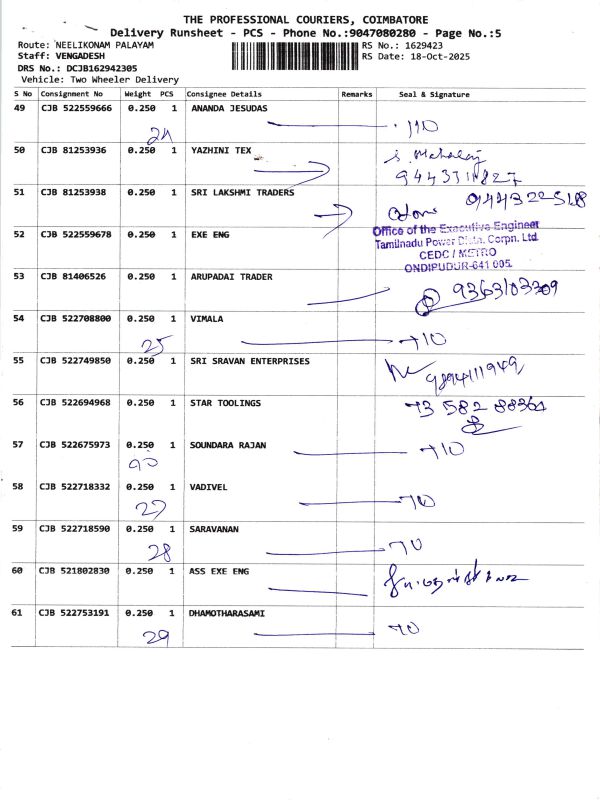 THE PROFESSIONAL COURIERS, COIMBATORE
Delivery Runsheet - PCS - Phone No.:9047080280 - Page No.:5
Route: NEELIKONAM PALAYAM RS No.: 1629423
Staff: VENGADESH RS Date: 18-Oct-2025
DRS No.: DCJB162942305
Vehicle: Two Wheeler Delivery
S No Consignment No Weight PCS Consignee Details Remarks Seal & Signature
49 CJB 522559666 0.250 1 ANANDA JESUDAS
24
50 CJB 81253936 0.250 1 YAZHINI TEX
51 CJB 81253938 0.250 1 SRI LAKSHMI TRADERS
52 CJB 522559678 0.250 1 EXE ENG
Office of the Executive Engineer
Tamilnadu Power Distn. Corpn. Ltd.
CEDC / METRO
ONDIPUDUR-641 005.
53 CJB 81406526 0.250 1 ARUPADAI TRADER
9363103309
54 CJB 522708800 0.250 1 VIMALA
25
55 CJB 522749850 0.250 1 SRI SRAVAN ENTERPRISES
9894111949
56 CJB 522694968 0.250 1 STAR TOOLINGS
73 582 88361
57 CJB 522675973 0.250 1 SOUNDARA RAJAN
58 CJB 522718332 0.250 1 VADIVEL
27
59 CJB 522718590 0.250 1 SARAVANAN
28
60 CJB 521802830 0.250 1 ASS EXE ENG
61 CJB 522753191 0.250 1 DHAMOTHARASAMI
29